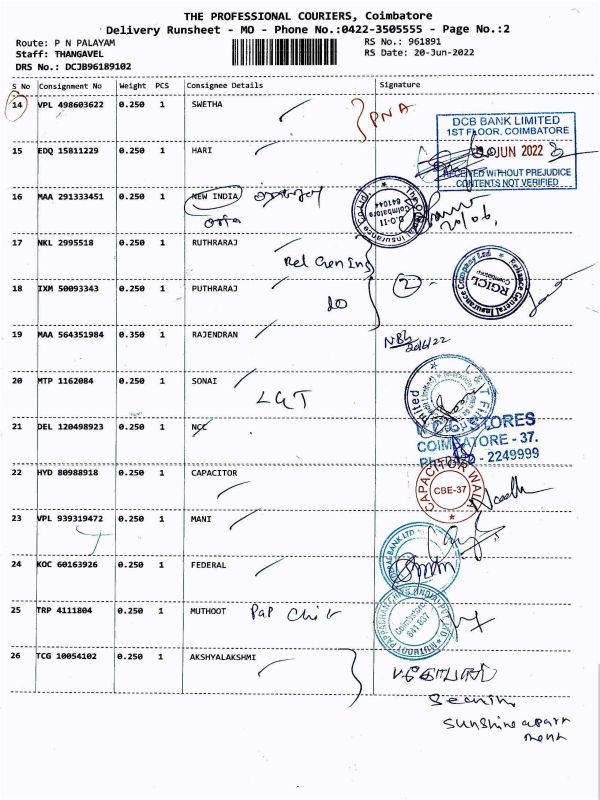 THE PROFESSIONAL COURIERS, Coimbatore
Delivery Runsheet - MO - Phone No.:0422-3505555 - Page No.:2
Route: P N PALAYAM RS No.: 961891
Staff: THANGAVEL RS Date: 20-Jun-2022
DRS No.: DCJB96189102
S No Consignment No Weight PCS Consignee Details Signature
14 VPL 498603622 0.250 1 SWETHA PNA
DCB BANK LIMITED
1ST FLOOR, COIMBATORE
JUN 2022
RECEIVED WITHOUT PREJUDICE
CONTENTS NOT VERIFIED
15 EDQ 15811229 0.250 1 HARI
16 MAA 291333451 0.250 1 NEW INDIA
D.O-11
Coimbatore
641044
17 NKL 2995518 0.250 1 RUTHRARAJ
Rel Gen Ins
Reliance General Insurance Company Ltd
RGICL
Coimbatore
18 IXM 50093343 0.250 1 PUTHRARAJ 2
19 MAA 564351984 0.350 1 RAJENDRAN
20/6/22
20 MTP 1162084 0.250 1 SONAI
L&T
21 DEL 120498923 0.250 1 NCC
STORES
COIMBATORE - 37.
- 2249999
22 HYD 80988918 0.250 1 CAPACITOR
CAPACITOR WALA
CBE-37
23 VPL 939319472 0.250 1 MANI
24 KOC 60163926 0.250 1 FEDERAL
BANK LTD
25 TRP 4111804 0.250 1 MUTHOOT Pap Chit
MUTHOOT PAPPACHAN CHITS INDIA PVT LTD
Coimbatore
641 037
26 TCG 10054102 0.250 1 AKSHYALAKSHMI
Sunshine apart
ment